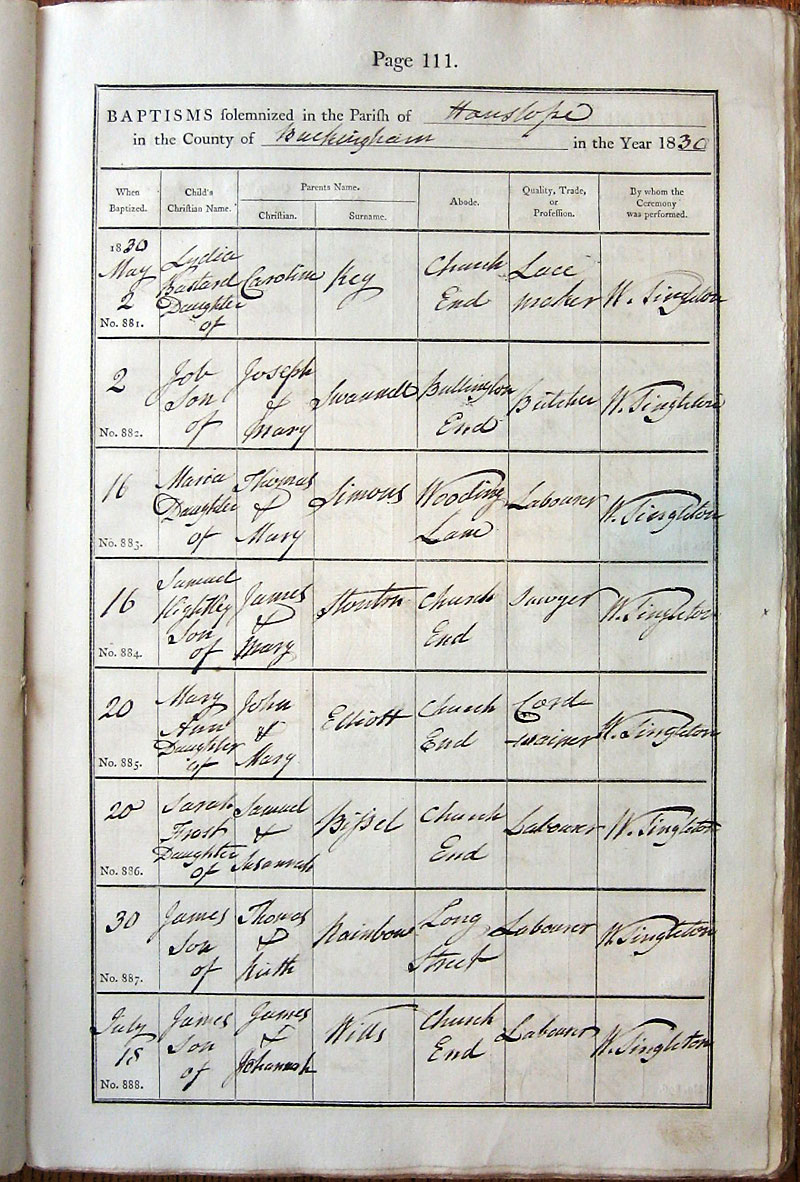 Page 111.
BAPTISMS solemnized in the Parish of Hanslope
in the County of Buckingham in the Year 1830
When Baptized.
Child's Christian Name.
Parents Name.
Christian.
Surname.
Abode.
Quality, Trade, or Profession.
By whom the Ceremony was performed.
1830 May 2 No. 881.
Lydia Bastard Daughter of
Caroline
Key
Church End
Lace maker
W. Singleton
2 No. 882.
Job Son of
Joseph & Mary
Swannell
Bullington End
Butcher
W. Singleton
16 No. 883.
Maria Daughter of
Thomas & Mary
Simons
Wooding Lane
Labourer
W. Singleton
16 No. 884.
Samuel Kightley Son of
James & Mary
Stonton
Church End
Sawyer
W. Singleton
20 No. 885.
Mary Ann Daughter of
John & Mary
Elliott
Church End
Cord-wainer
W. Singleton
20 No. 886.
Sarah Frost Daughter of
Samuel & Susannah
Bissel
Church End
Labourer
W. Singleton
30 No. 887.
James Son of
Thomas & Ruth
Rainbow
Long Street
Labourer
W. Singleton
July 18 No. 888.
James Son of
James & Johannah
Wills
Church End
Labourer
W. Singleton